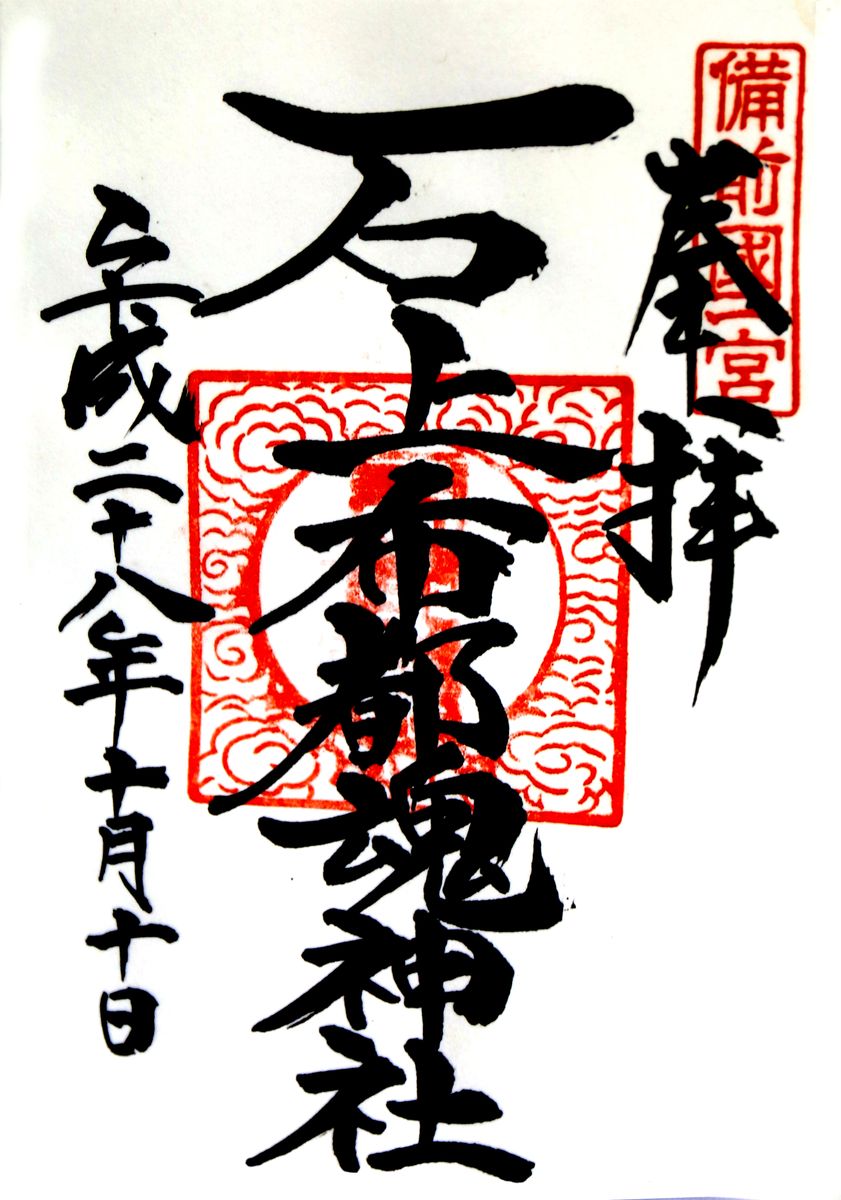 備前國一宮
奉拝
石上布都魂神社
平成二十八年十月十日